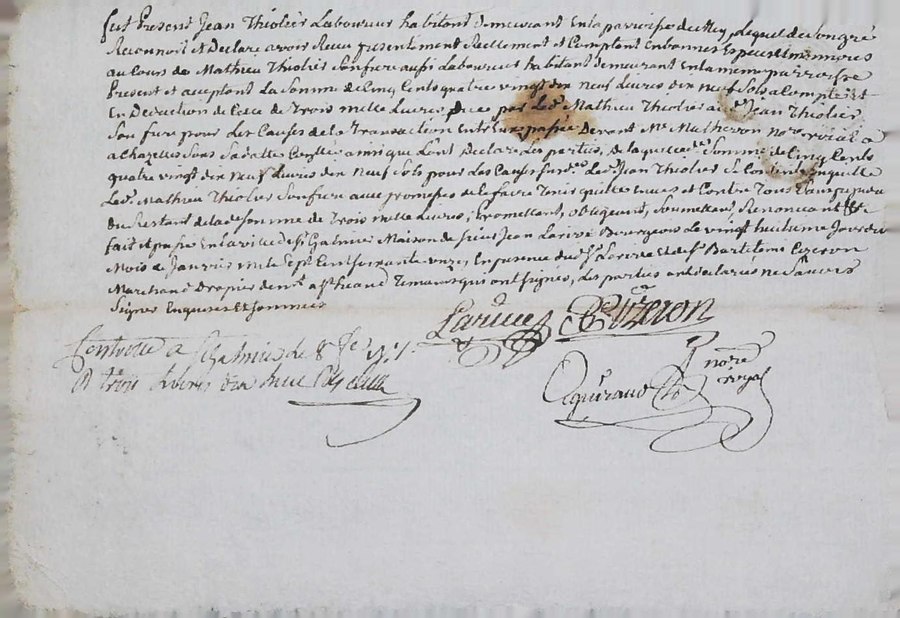 fut Present Jean Thiolier Laboureur habitant demeurant En la parroisse de Lequel de son gré
Reconnoit et Declare avoir Receu presentement Reellement et Comptant En bonnes Especes et monnoies
au Cours de Mathieu Thiolier Son frere aussi Laboureur habitant demeurant En la meme parroisse
Present et acceptant La Somme de Cinq Cents quatre vingt dix neuf Livres dix neuf Sols a Compte Et
En Deduction de Celle de Trois mille Livres par Led. Mathieu Thiolier aud. Jean Thiolier
Son frere pour Les Causes de la Transaction Entreux passée Devant Me. Matheron nore. royal a
a Chazelles Sous ainsi que Lont Declaré Les parties, de laquelle de. Somme de Cinq Cents
quatre vingt dix Neuf Livres dix Neuf Sols pour Les Causes Led. Jean Thiolier Se Contente En quitte
Led. Mathieu Thiolier Son frere avec promesse de Le faire Tenir quitte Envers et Contre Tous
du Restant de lade. Somme de Trois mille Livres, promettant, obligeant, Soumettant, Renonceant &c.
fait et passé En la ville de St. Galmier Maison de Sieur Jean Larive Bourgeois Le vingt huitieme Jour du
Mois de Janvier mil Sept Cent Soixante onze En presence dud. Sr. Larive Et de Sr. Bartelemi Cizeron
Marchand Drapier demt. a St. heand Temoins qui ont Signés, Les parties ont declarés ne Sçavoir
Signer Enquises Et Sommées
Larive Bmi Cizeron
Controlle a St. Galmier Le 8 fe. 1771
R trois Livres dix huit Sols
nore.
royal